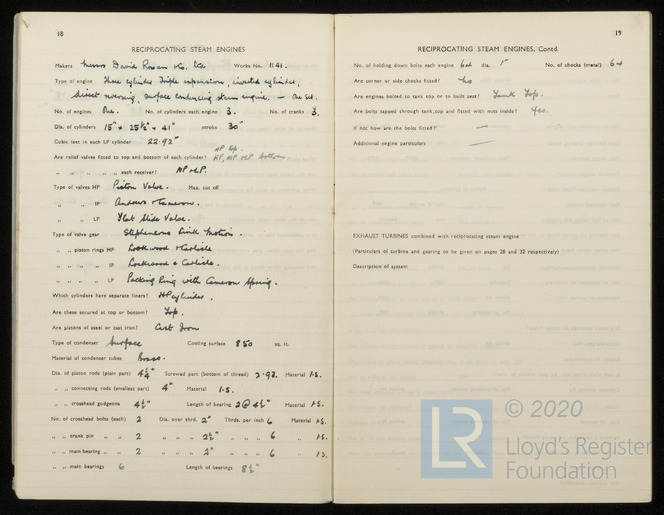 18
RECIPROCATING STEAM ENGINES
Makers Messrs David Rowan & Co. Ltd. Works No. 1141.
Type of engine Three cylinder Triple expansion, inverted cylinder,
direct reversing, surface condensing steam engine. — One Set.
No. of engines One. No. of cylinders each engine 3. No. of cranks 3.
Dia. of cylinders 15" + 25½" + 41" stroke 30"
Cubic feet in each LP cylinder 22.92"
HP top.
Are relief valves fitted to top and bottom of each cylinder? HP, MP & LP bottom
„ „ „ „ each receiver? MP & LP.
Type of valves HP Piston Valve. Max. cut off
„ „ IP Andrews & Cameron.
„ „ LP Flat Slide Valve.
Type of valve gear Stephensons Link Motion.
„ „ piston rings HP Lockwood & Carlisle
„ „ „ „ IP Lockwood & Carlisle.
„ „ „ „ LP Packing Ring with Cameron Spring.
Which cylinders have separate liners? HP cylinder.
Are these secured at top or bottom? Top.
Are pistons of steel or cast iron? Cast Iron
Type of condenser Surface Cooling surface 850 sq. ft.
Material of condenser tubes Brass.
Dia. of piston rods (plain part) 4¼" Screwed part (bottom of thread) Material I.S.
„ „ connecting rods (smallest part) 4" Material I.S.
„ „ crosshead gudgeons 4½" Length of bearing 2 @ 4½" Material I.S.
No. of crosshead bolts (each) 2 Dia. over thrd. 2" Thrds. per inch 6 Material I.S.
„ „ crank pin „ „ 2 „ „ „ 2¼" „ „ „ 6 „ I.S.
„ „ main bearing „ „ 2 „ „ „ 2" „ „ „ 6 „ I.S.
„ „ main bearings 6 Length of bearings 8½"
19
RECIPROCATING STEAM ENGINES, Contd.
No. of holding down bolts each engine 64 dia. 1" No. of chocks (metal) 64
Are corner or side chocks fitted? No
Are engines bolted to tank top or to built seat? Tank Top.
Are bolts tapped through tank top and fitted with nuts inside? Yes.
If not how are the bolts fitted? —
Additional engine particulars —
EXHAUST TURBINES combined with reciprocating steam engine
(Particulars of turbine and gearing to be given on pages 28 and 32 respectively)
Description of system
LR
© 2020
Lloyd's Register
Foundation